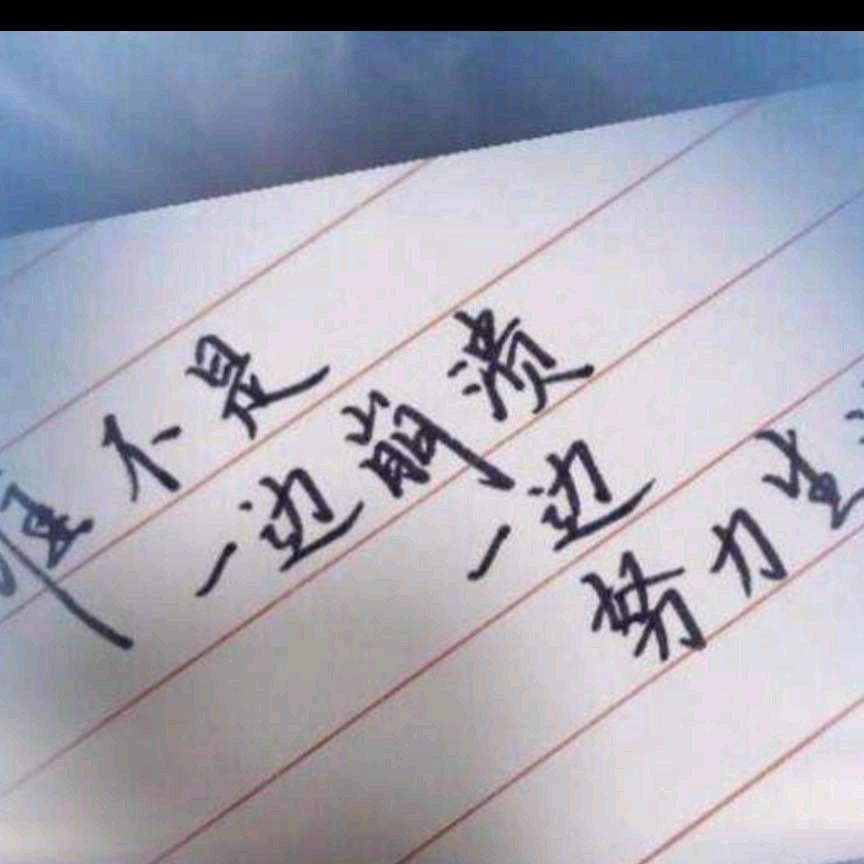 谁不是
一边崩溃
一边
努力生